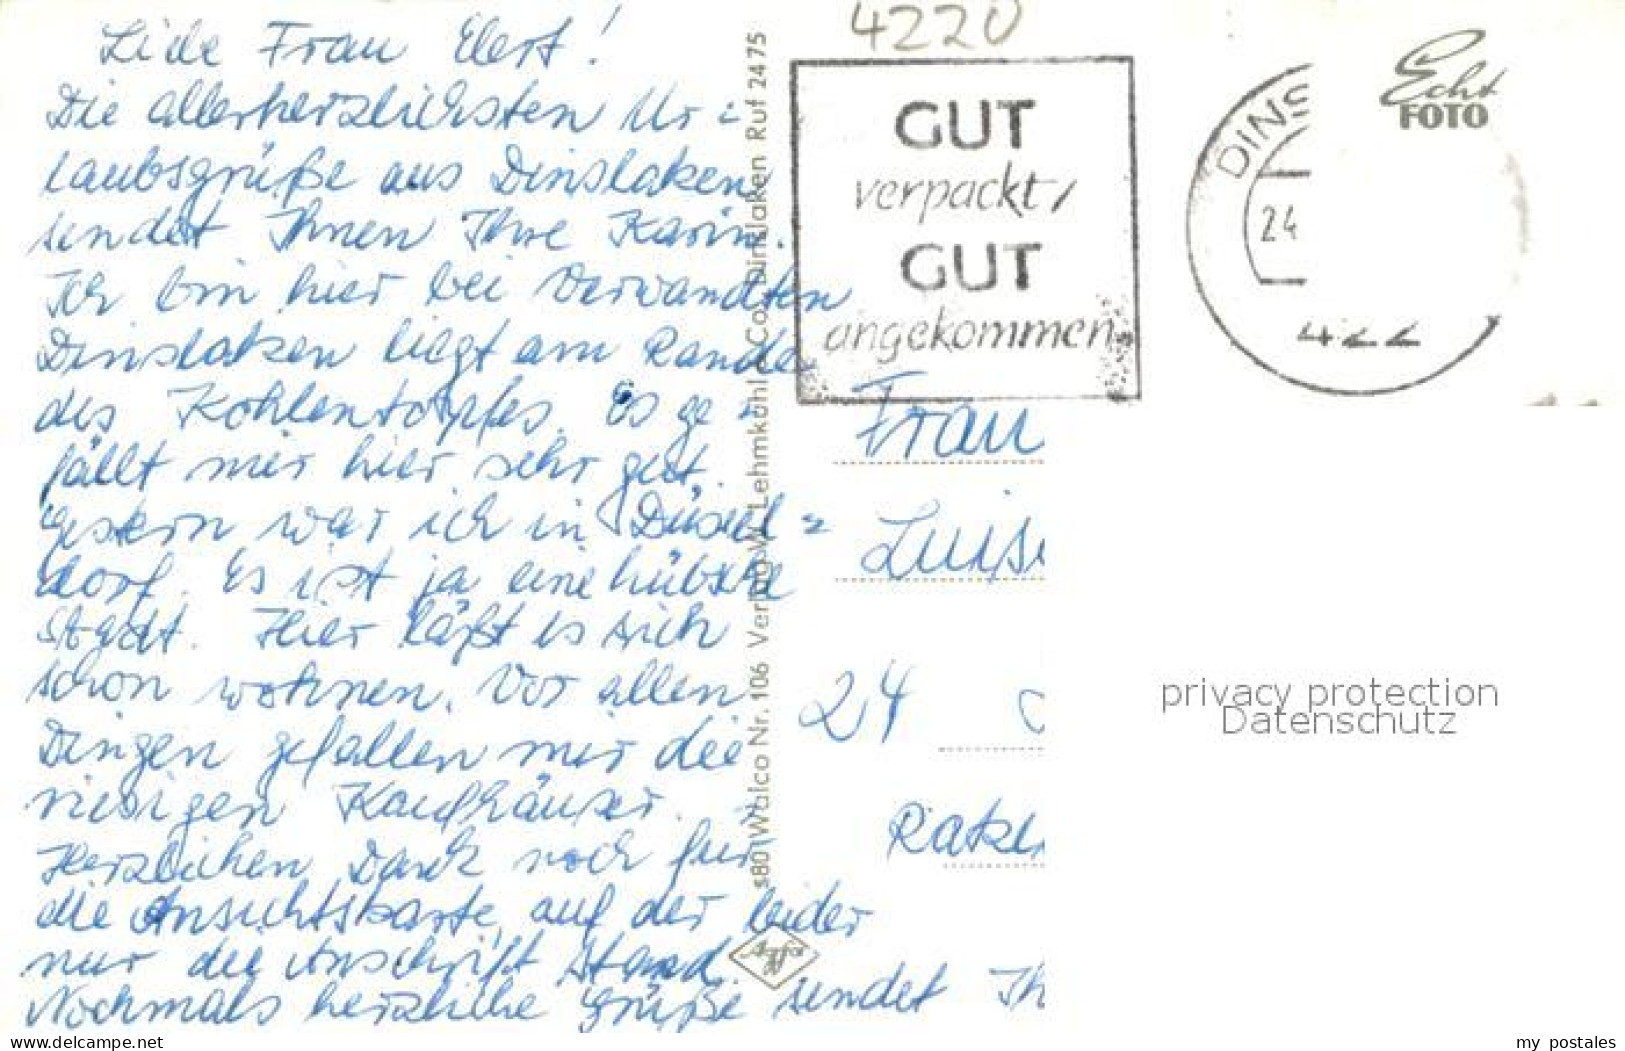 4220
Liebe Frau Elert!
Die allerherzlichsten Ur=
laubsgrüße aus Dinslaken
sendet Ihnen Ihre Karin.
Ich bin hier bei Verwandten
Dinslaken liegt am Rande
des Kohlentopfes. Es ge=
fällt mir hier sehr gut.
Gestern war ich in Düssel=
dorf. Es ist ja eine hübsche
Stadt. Hier läßt es sich
schon wohnen. Vor allen
Dingen gefallen mir die
riesigen Kaufhäuser.
Herzlichen Dank noch für
die Ansichtskarte, auf der leider
nur die Anschrift stand.
Nochmals herzliche Grüße sendet Ih
s801 Walco Nr. 106 Verlag W. Lehmkühler Co. Dinslaken Ruf 2475
GUT
verpackt,
GUT
angekommen
DINS
24
422
Echt
FOTO
Frau
Luise
24
Ratze
privacy protection
Datenschutz
Delcampe.net
my_postales